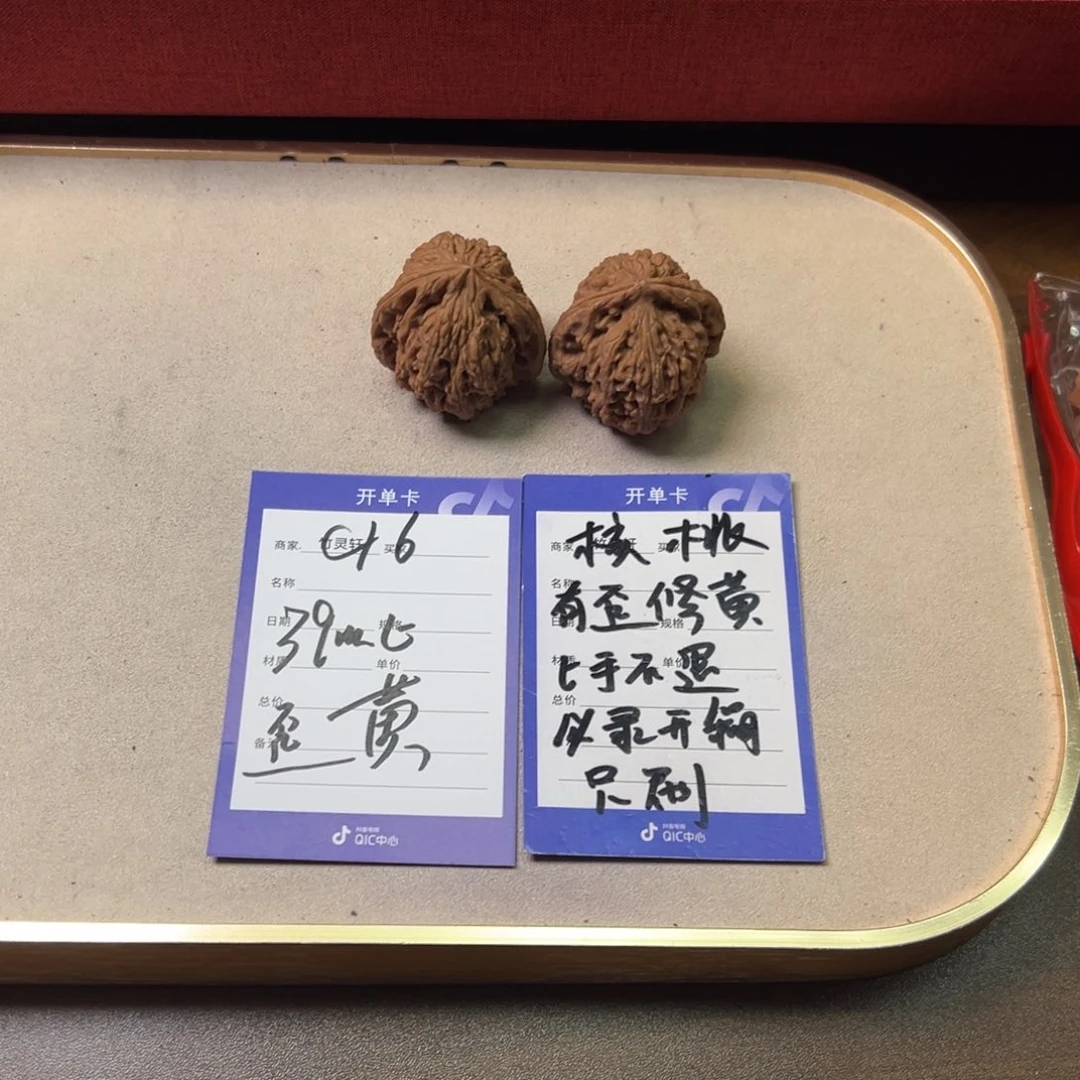 开单卡
商家 竹灵轩 买家
C16
名称
日期 规格
39mm上
材质 单价
总价
歪黄
备注
抖音电商
QIC中心
开单卡
商家 买家
核桃
名称
有歪修黄
日期 规格
上手不退
材质 单价
总价
以录开箱
只刷
抖音电商
QIC中心